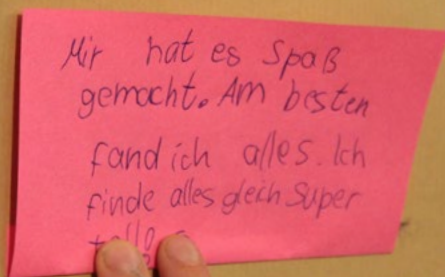 Mir hat es Spaß
gemacht. Am besten
fand ich alles. Ich
finde alles gleich super